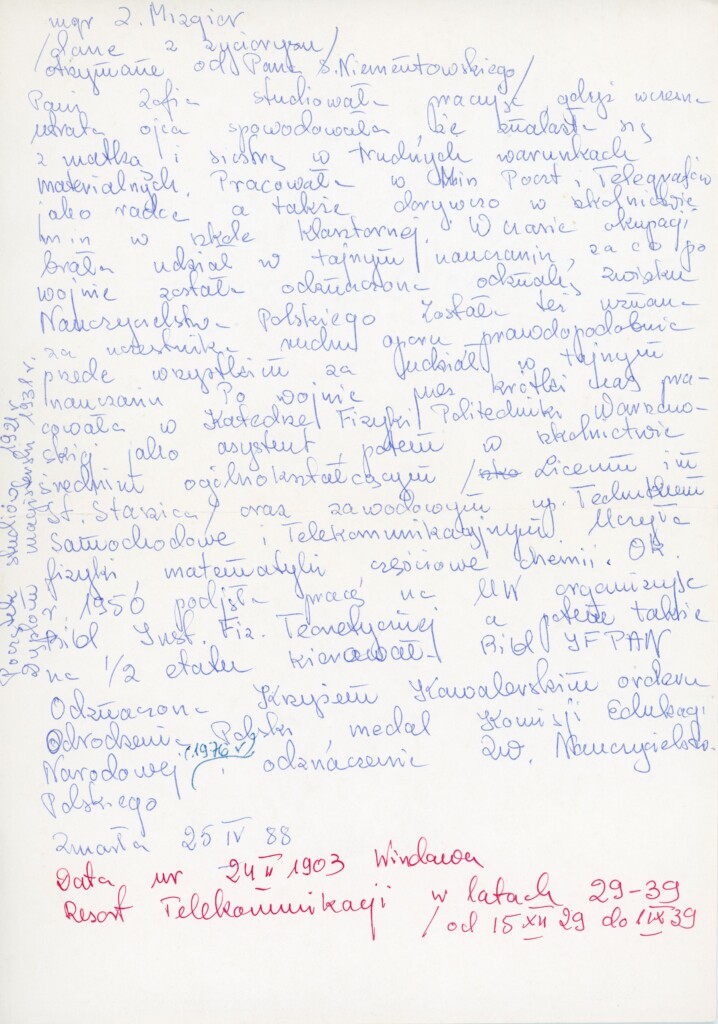 mgr Z. Mizgier
/dane z życiorysu/
otrzymane od Pana S. Niementowskiego/
Pani Zofia studiowała pracując, gdyż wczesna
utrata ojca spowodowała, że znalazła się
z matką i siostrą w trudnych warunkach
materialnych. Pracowała w Min Poczt i Telegrafów
jako radca a także dorywczo w szkolnictwie
m in w szkole klasztornej. W czasie okupacji
brała udział w tajnym nauczaniu, za co po
wojnie została odznaczona odznaką Związku
Nauczycielstwa Polskiego Została też uznana
za uczestnika ruchu oporu prawdopodobnie
przede wszystkim za udział w tajnym
nauczaniu Po wojnie przez krótki czas pra-
cowała w Katedrze Fizyki Politechniki Warszaw-
skiej jako asystent, potem w szkolnictwie
średnim ogólnokształcącym / Liceum im
St. Staszica/ oraz zawodowym np. Technikum
Samochodowe i Telekomunikacyjnym Uczyła
fizyki, matematyki częściowo chemii. Ok.
r 1950 podjęła pracę na UW organizując
Bibl Inst. Fiz. Teoretycznej a potem także
na 1/2 etatu kierowała Bibl IFPAN
Odznaczona Krzyżem Kawalerskim orderu
Odrodzenia Polski, medal Komisji Edukacji
Narodowej /1976 r/ i odznaczenie Zw. Nauczycielstwa
Polskiego
Zmarła 25 IV 88
Data ur 24 II 1903 Windawa
Resort Telekomunikacji w latach 29-39
/od 15 XII 29 do 1 IX 39
Początek studiów 1921 r.
Dyplom magisterski 1931 r.